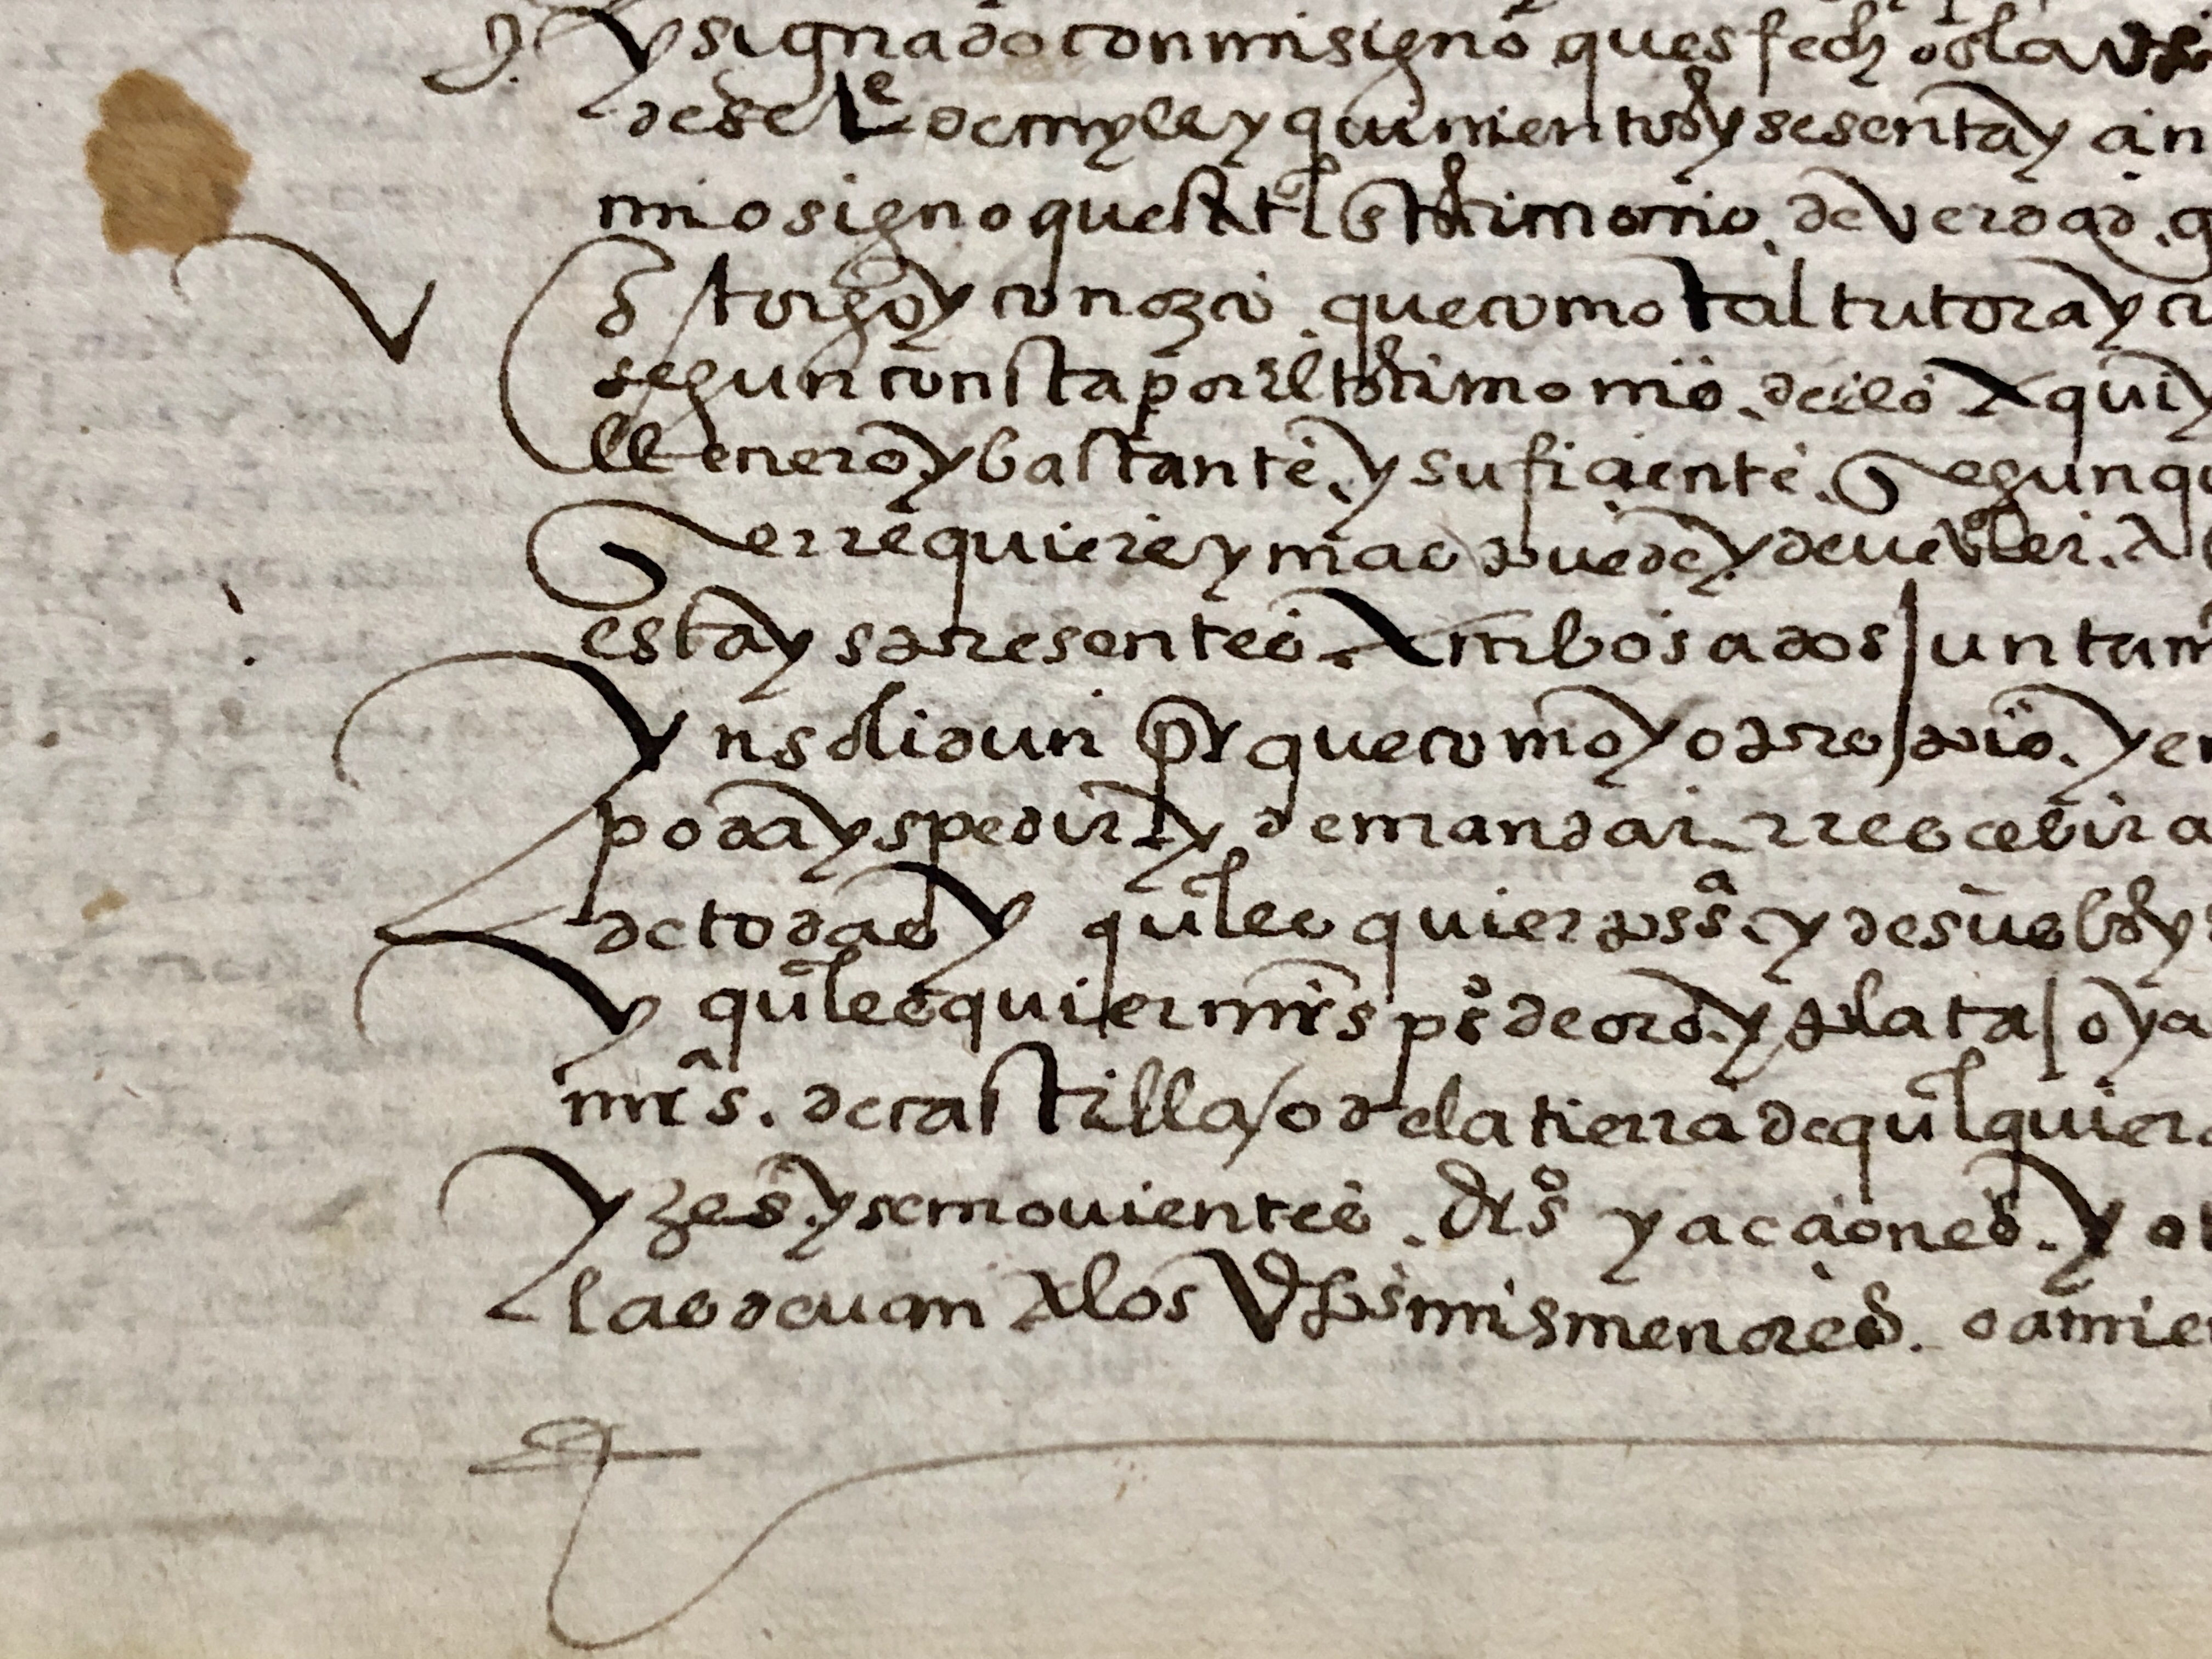 y signado con mi signo ques fecho
de set e de myle y quinientos y sesenta y cin
mio signo questa tl testimonio de verdad. q
otorgo y conozco. que como tal tutora y cu
segun consta por el testimonio. dello
llenero y bastante. y suficiente. Segun qu
Se rrequiere y mas puede y deve valer. A
estays presentes Ambos a dos Juntam
Yns olidun pr que como yo propio. y en
podays pedir y demandar rrescebir a
de todas y qules quier pssas. y de sus bs y
y qules quier mrs ps de oro. y plata / o ya
mrs. de castilla / o de la tierra de qulquier
yzes. y semovientes. drs y aciones. y ot
las devan A los dhos mis menores.